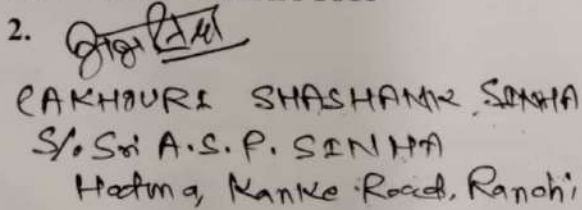 2.
LAKHOURI SHASHANK SINHA
S/o Sri A.S.P. SINHA
Hatma, Kanke Road, Ranchi